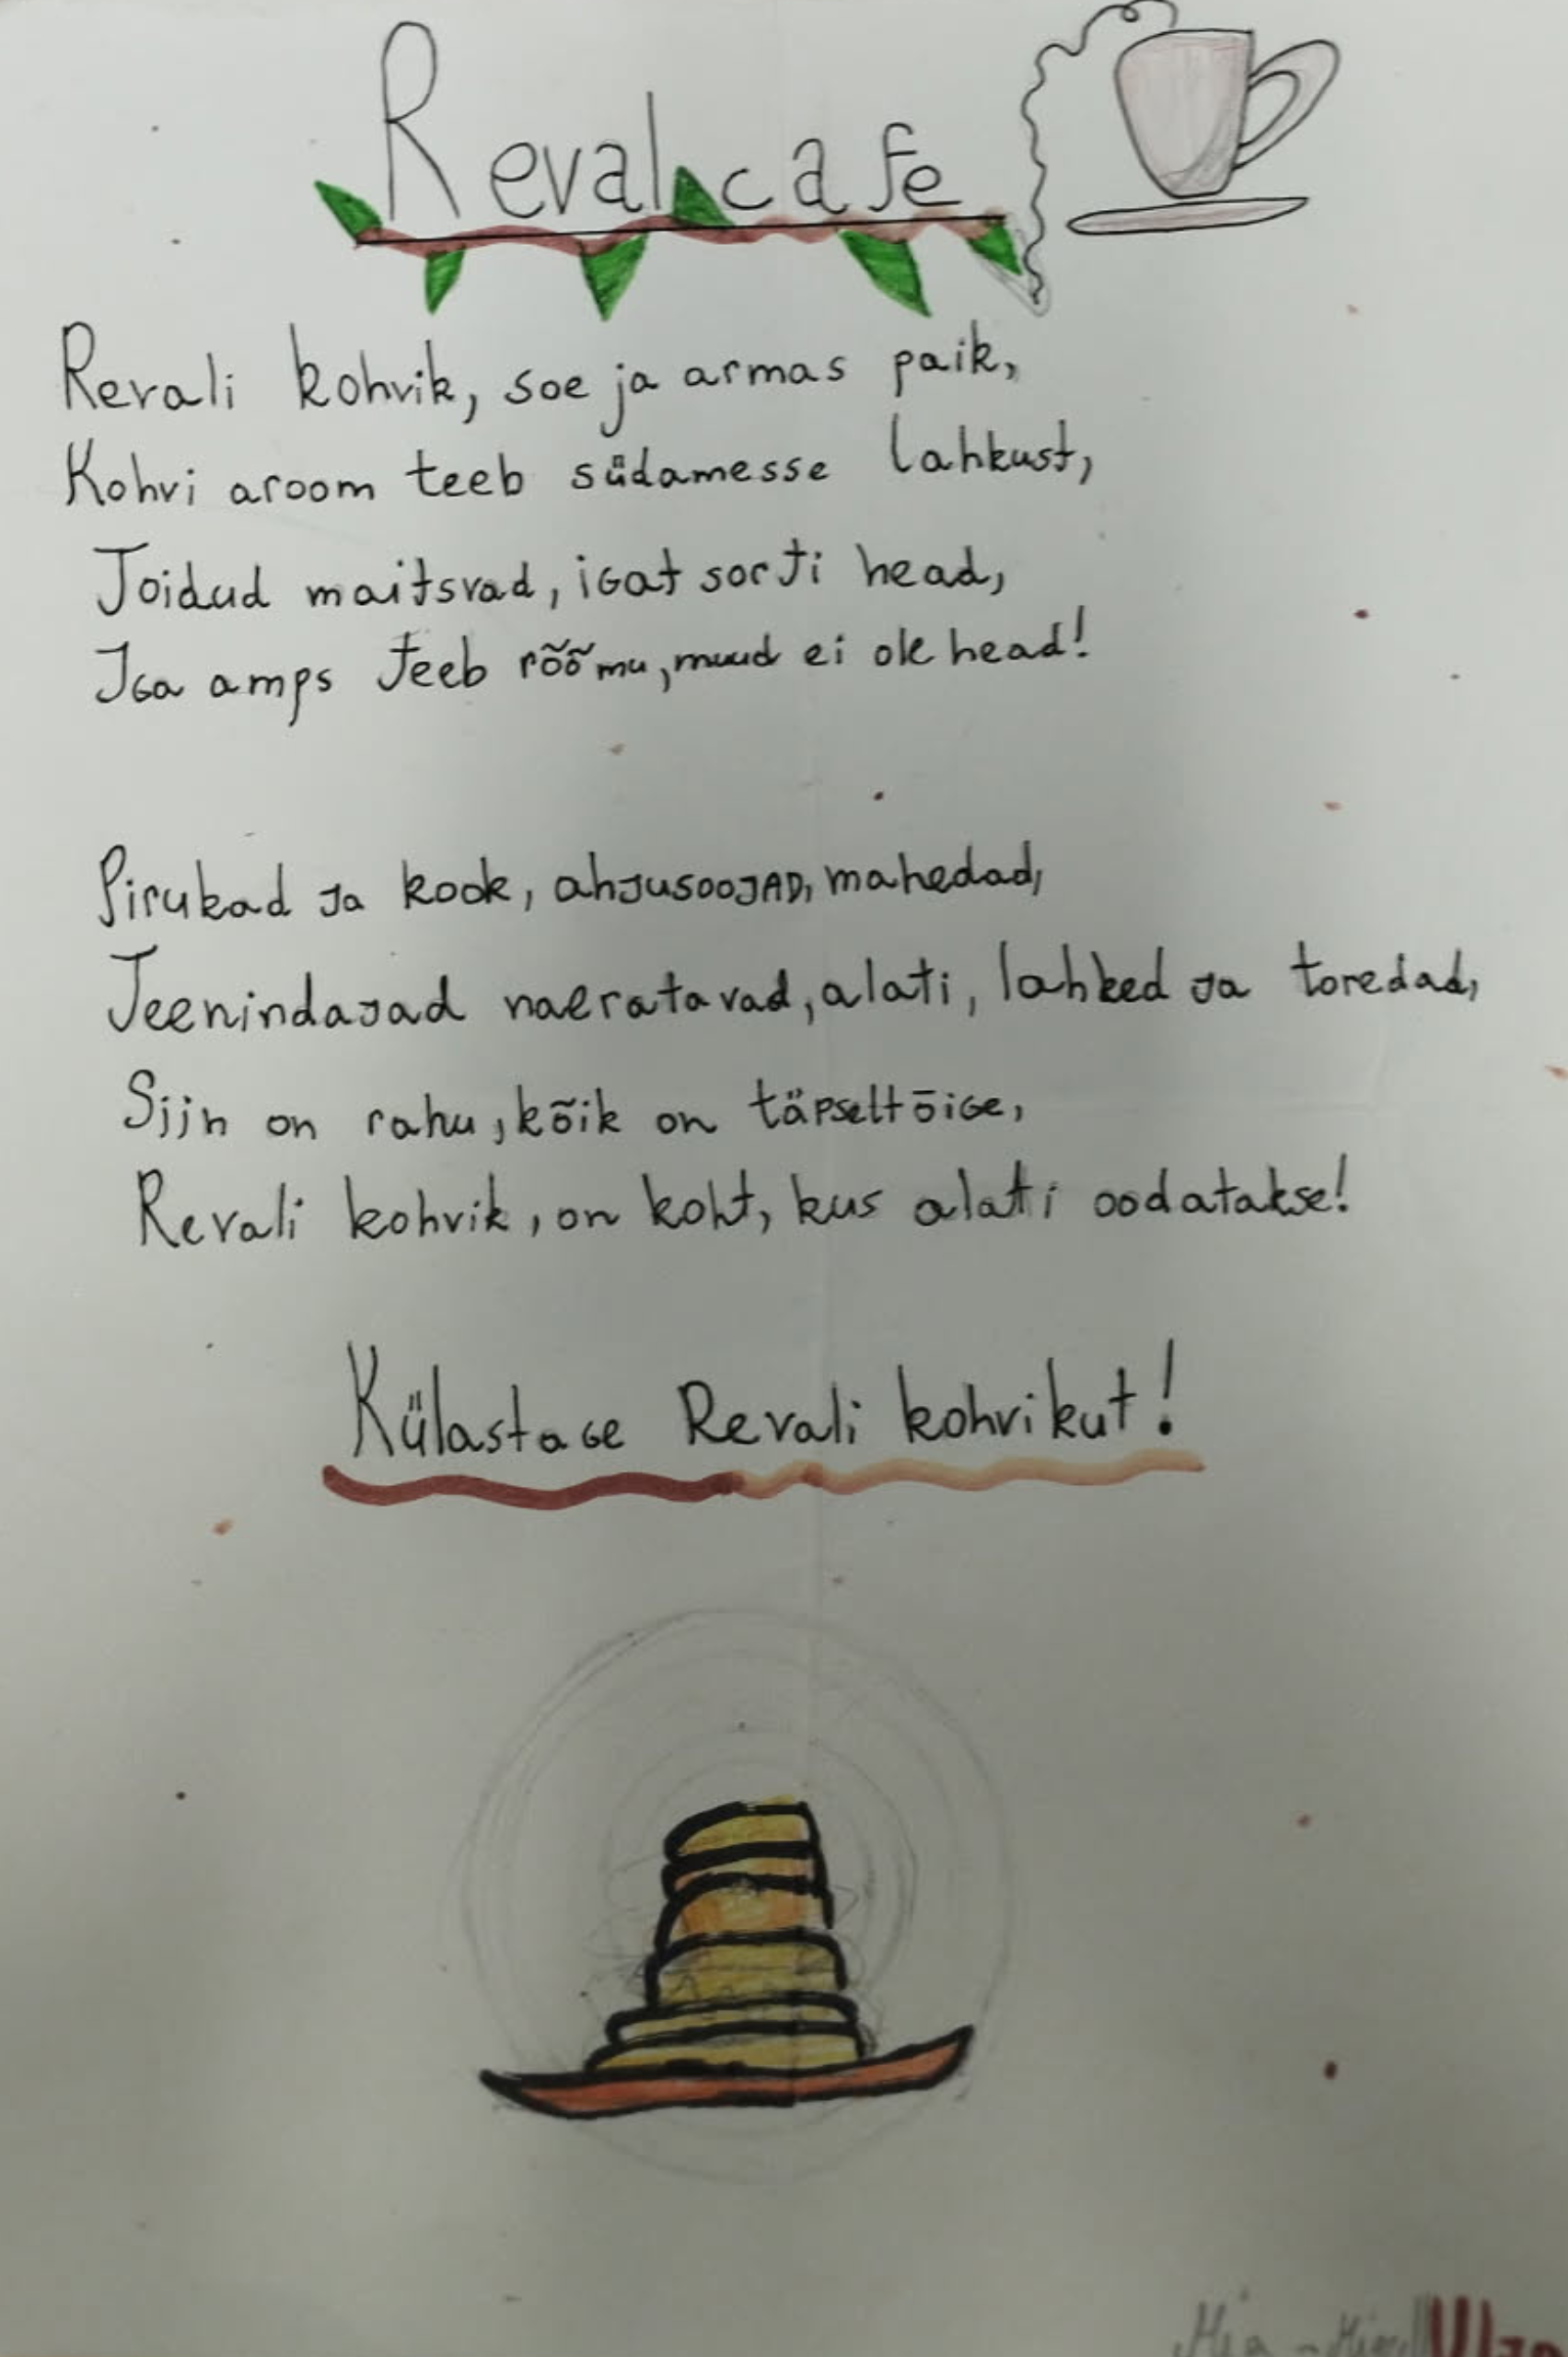 Reval cafe
Revali kohvik, soe ja armas paik,
Kohvi aroom teeb südamesse lahkust,
Toidud maitsvad, igat sorti head,
Iga amps teeb rõõmu, muud ei ole head!
Pirukad ja kook, ahjusoojad, mahedad,
Teenindajad naeratavad, alati, lahked ja toredad,
Siin on rahu, kõik on täpselt õige,
Revali kohvik, on koht, kus alati oodatakse!
Külastage Revali kohvikut!